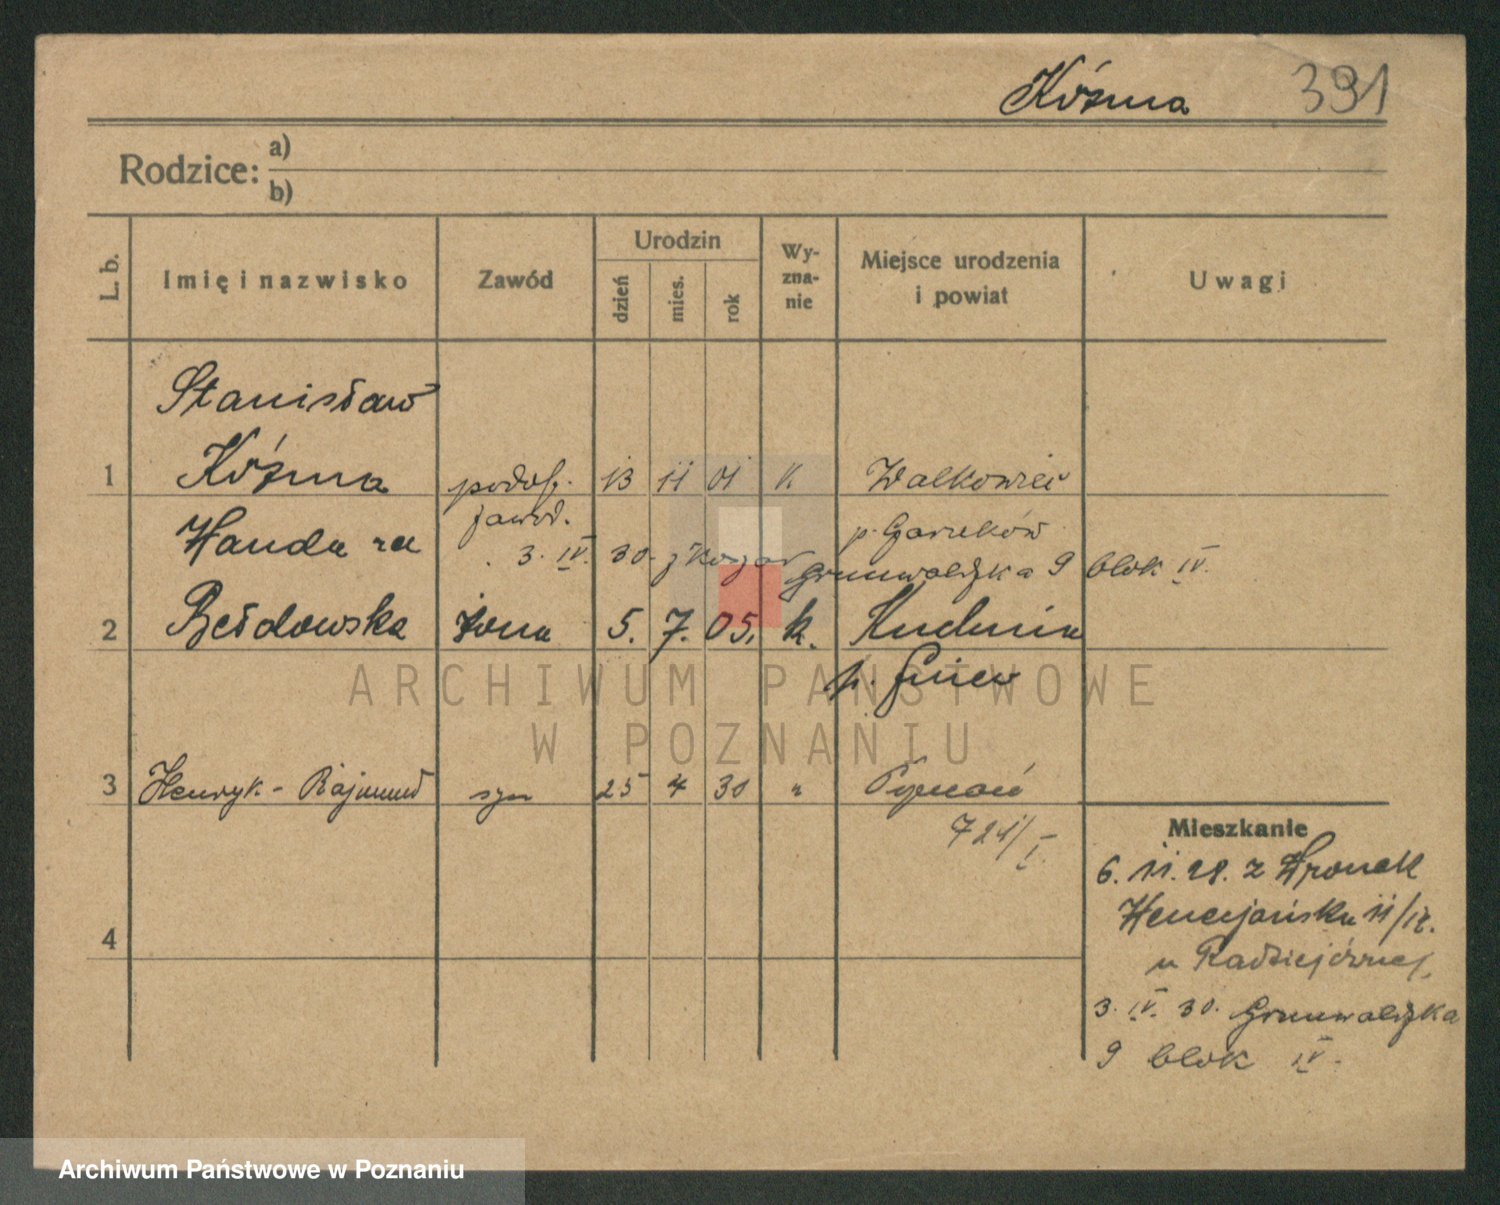 Kóźma 391
Rodzice: a)
b)
L. b. Imię i nazwisko Zawód Urodzin dzień mies. rok Wy-zna-nie Miejsce urodzenia i powiat Uwagi
Stanisław
1 Kóźma podof. 13 11 01 k. Walkowice
zawod. p. Czarnków
3. IV. 30. z koszar Grunwaldzka 9 blok IV.
Wanda
2 żona 5. 7. 05. k.
p. Gniew
3 Henryk - Rajmund syn 25 4 30 " Poznań
721/I.
4
Mieszkanie
6. 11. 28. z Wronek
Wenecjańska 11/12.
u
3. IV. 30. Grunwaldzka
9 blok IV.
ARCHIWUM PAŃSTWOWE
W POZNANIU
Archiwum Państwowe w Poznaniu